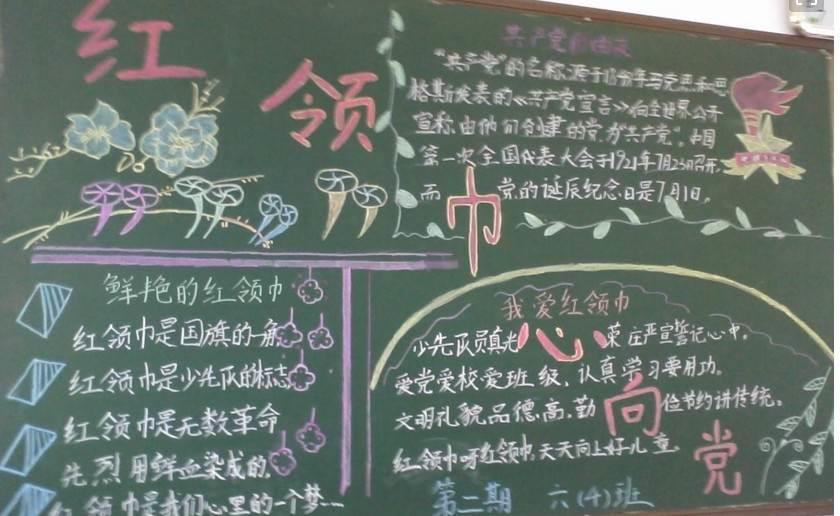 红
领
巾
心
向
党
共产党的由来
"共产党"的名称,源于1848年马克思和恩
格斯发表的《共产党宣言》向全世界公开
宣称,由他们创建的党为"共产党"。中国
第一次全国代表大会于1921年7月23日召开,
而 党的诞辰纪念日是7月1日。
鲜艳的红领巾
红领巾是国旗的一角
红领巾是少先队的标志
红领巾是无数革命
先烈用鲜血染成的
红领巾是我们心里的一个梦...
我爱红领巾
少先队员真光 荣庄严宣誓记心中。
爱党爱校爱班级,认真学习要用功。
文明礼貌品德高,勤 位节约讲传统。
红领巾呀红领巾,天天向上好儿童。
第二期 六(4)班